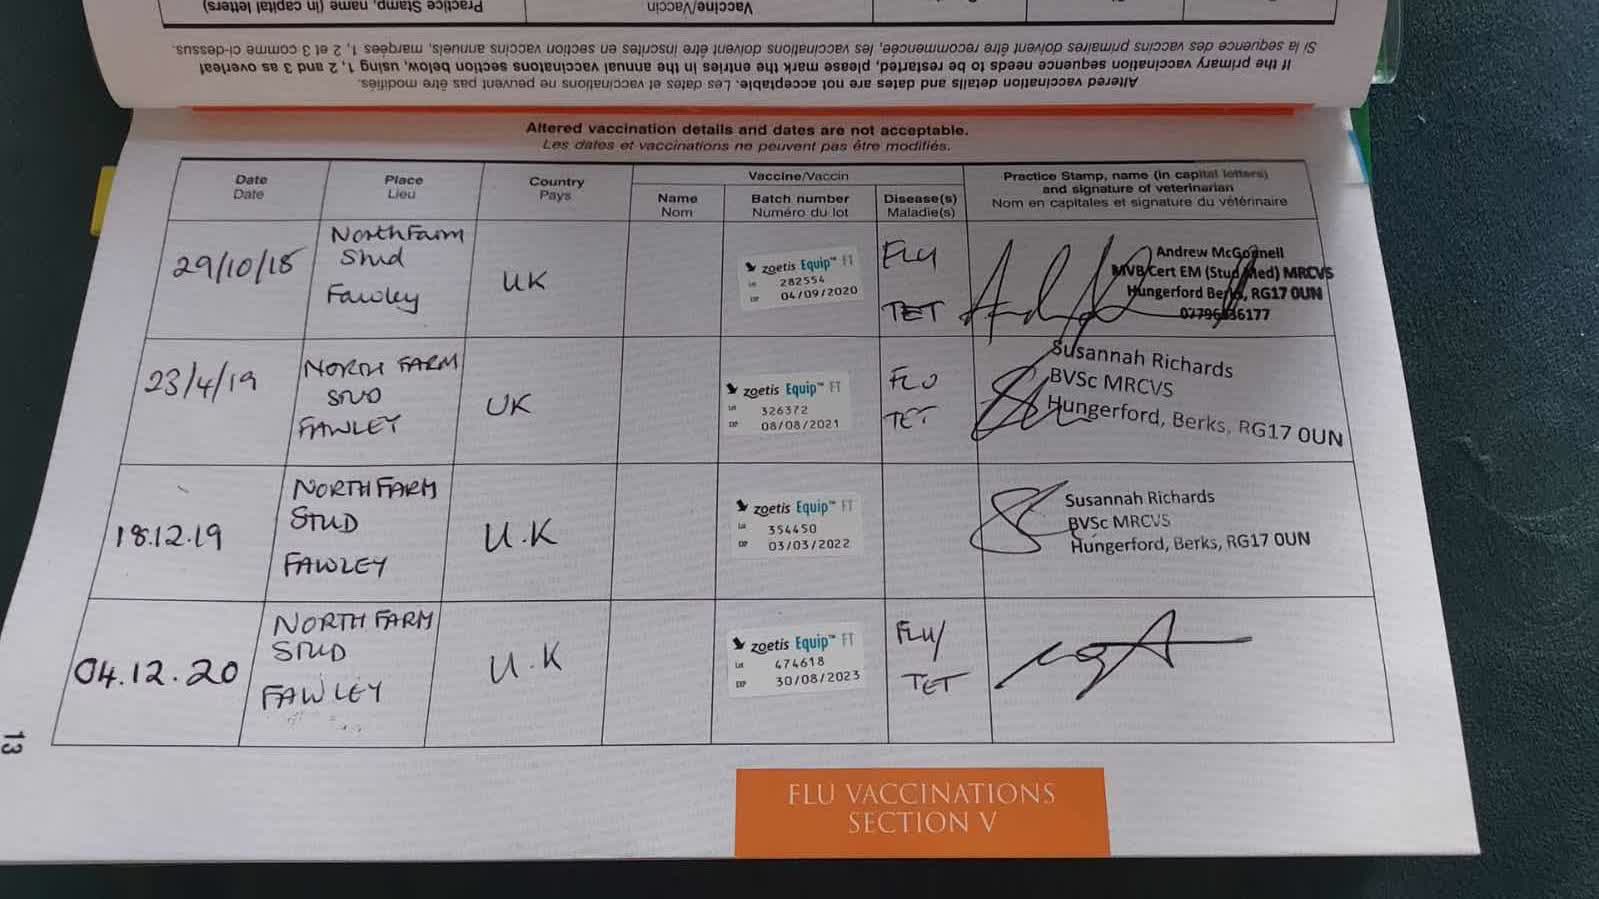 Practice Stamp, name (in capital letters)
Vaccine/Vaccin
Si la séquence des vaccins primaires doit être recommencée, les vaccinations doivent être inscrites en section vaccins annuels, marqées 1, 2 et 3 comme ci-dessus.
If the primary vaccination sequence needs to be restarted, please mark the entries in the annual vaccinatons section below, using 1, 2 and 3 as overleaf
Altered vaccination details and dates are not acceptable. Les dates et vaccinations ne peuvent pas être modifiés.
Altered vaccination details and dates are not acceptable.
Les dates et vaccinations ne peuvent pas être modifiés.
Date
Date
Place
Lieu
Country
Pays
Vaccine/Vaccin
Name
Nom
Batch number
Numéro du lot
Disease(s)
Maladie(s)
Practice Stamp, name (in capital letters)
and signature of veterinarian
Nom en capitales et signature du vétérinaire
29/10/18
North Farm
Stud
Fawley
UK
zoetis Equip™ FT
Lot 282554
EXP 04/09/2020
FLU
TET
Andrew McGonnell
MVB Cert EM (Stud Med) MRCVS
Hungerford Berks, RG17 0UN
23/4/19
NORTH FARM
STUD
FAWLEY
UK
zoetis Equip™ FT
Lot 326372
EXP 08/08/2021
FLU
TET
Susannah Richards
BVSc MRCVS
Hungerford, Berks, RG17 0UN
18.12.19
NORTH FARM
STUD
FAWLEY
U.K
zoetis Equip™ FT
Lot 354450
EXP 03/03/2022
Susannah Richards
BVSc MRCVS
Hungerford, Berks, RG17 0UN
04.12.20
NORTH FARM
STUD
FAWLEY
U.K
zoetis Equip™ FT
Lot 474618
EXP 30/08/2023
FLU/
TET
13
FLU VACCINATIONS
SECTION V